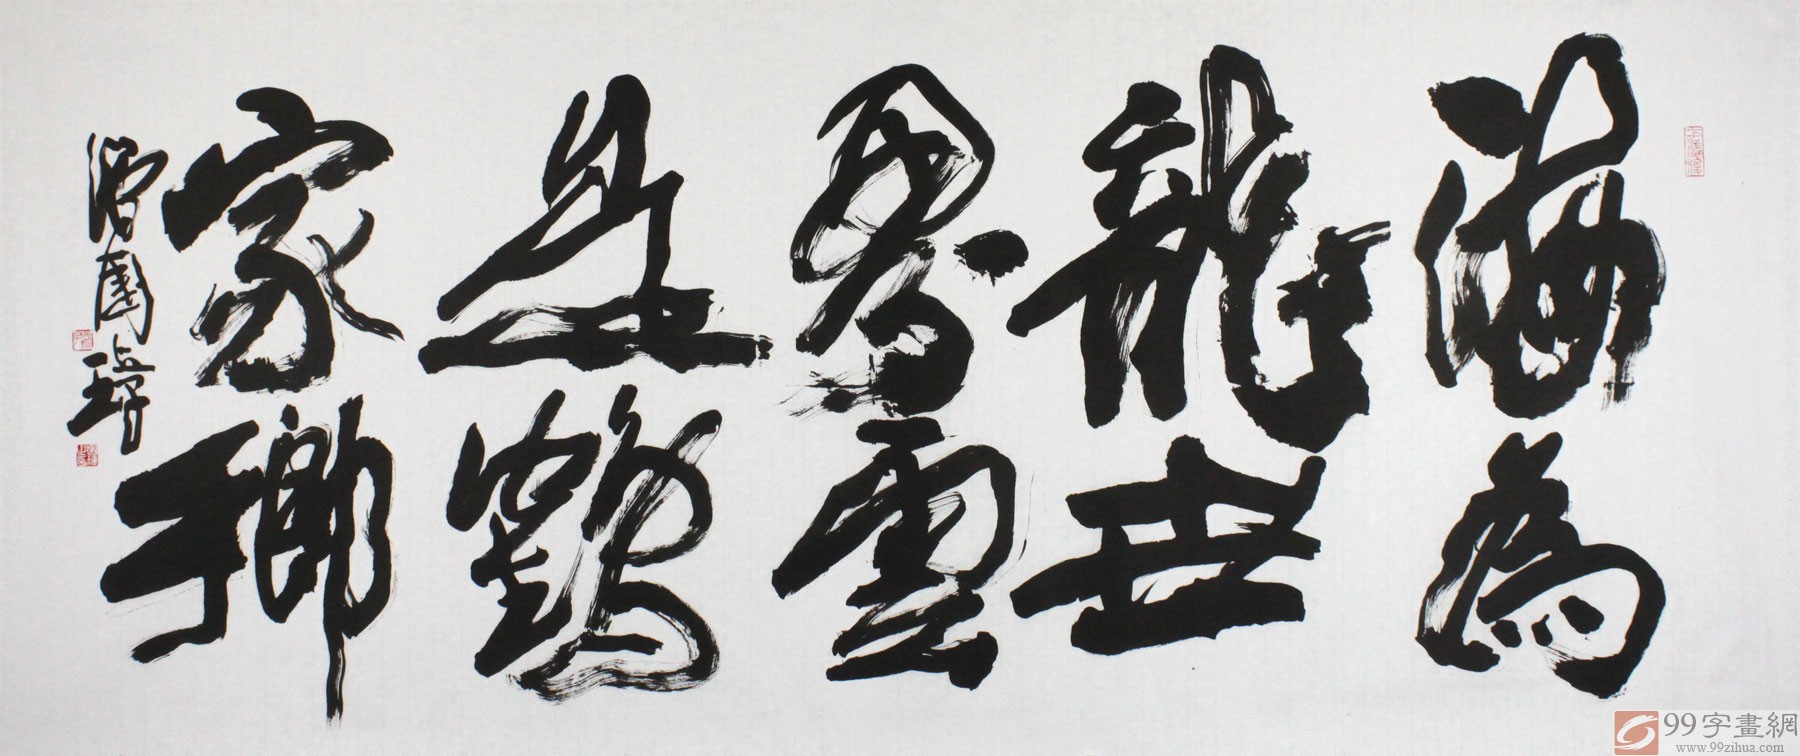 海為
龍世
界雲
是鶴
家鄉
99字畫網
www.99zihua.com